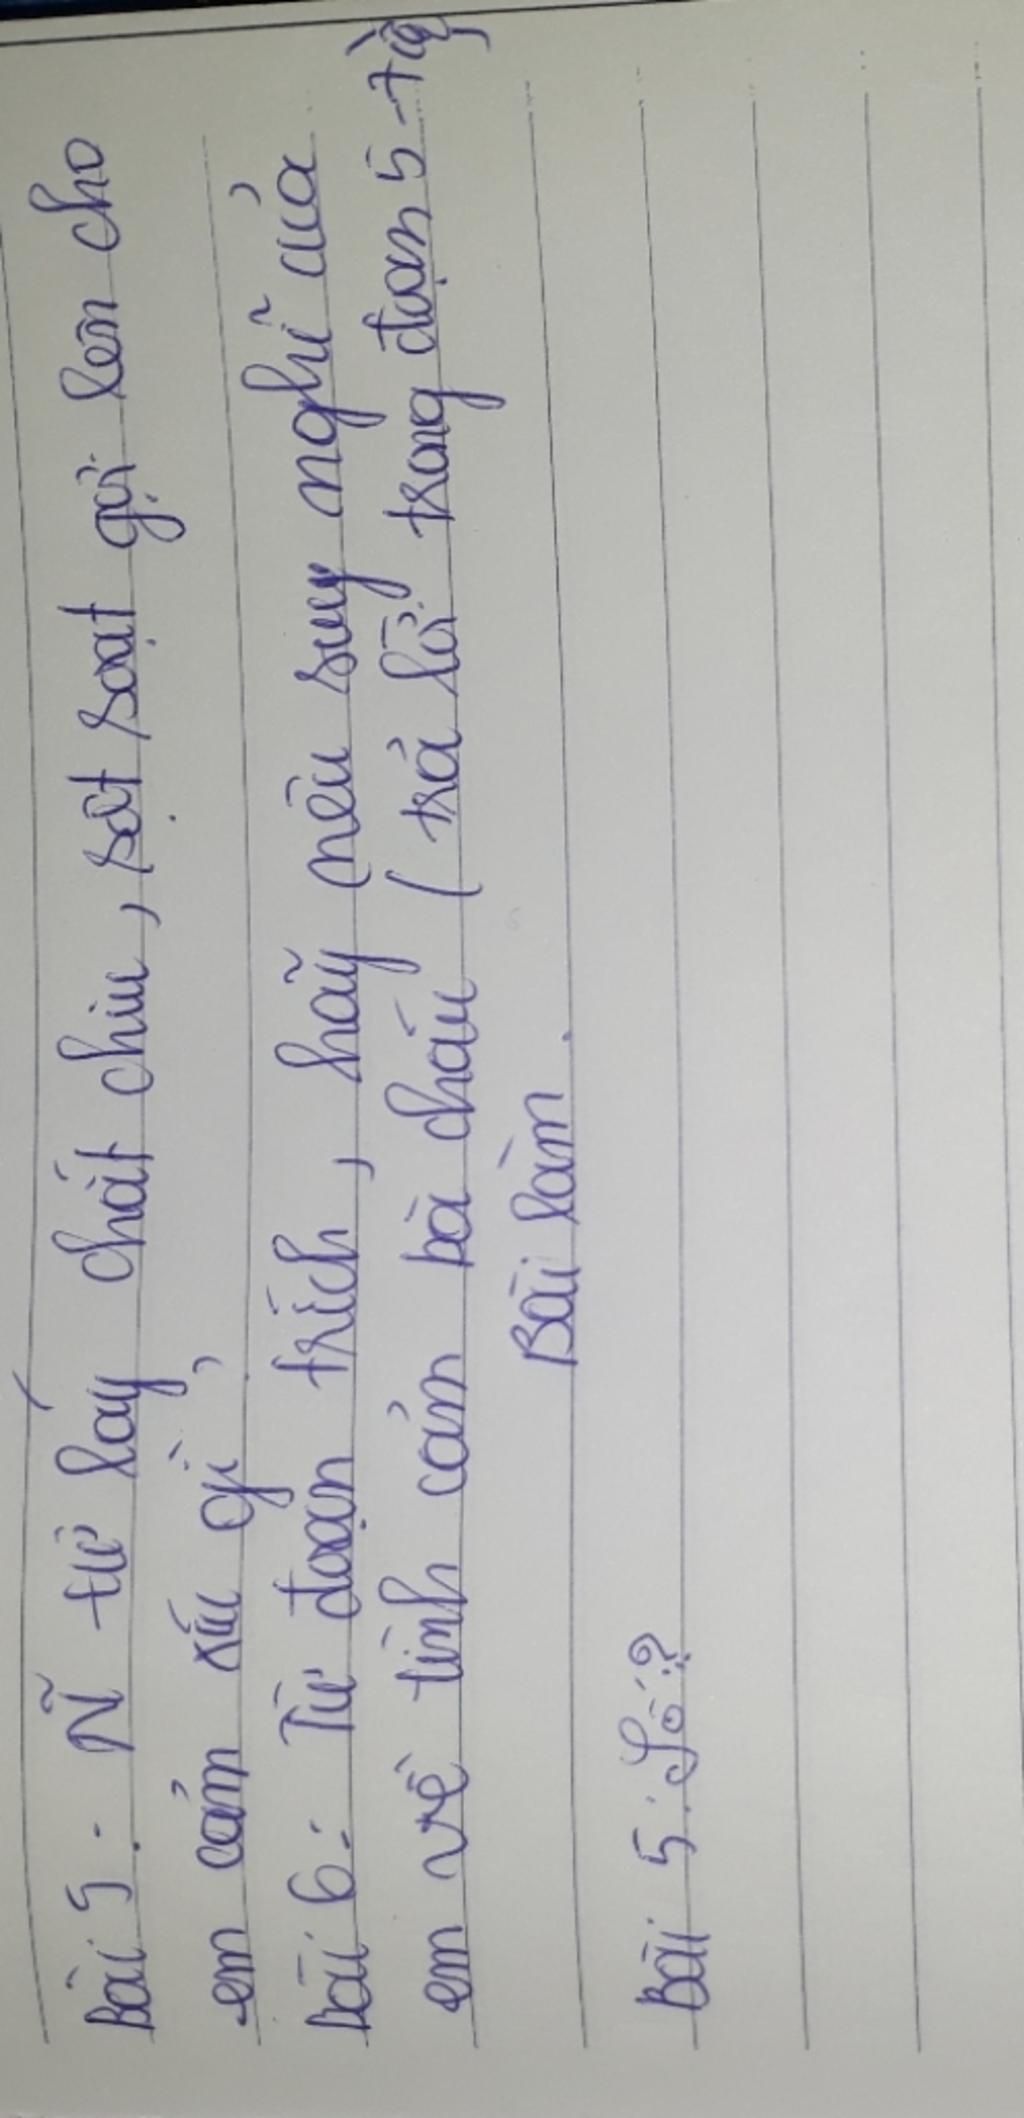 Bài 5: Ñ từ láy chắt chiu, sột soạt gợi lên cho
em cảm xúc gì?
Bài 6: Từ đoạn trích, hãy nêu suy nghĩ của
em về tình cảm bà cháu (trả lời trong đoạn 5-7
Bài làm.
Bài 5: